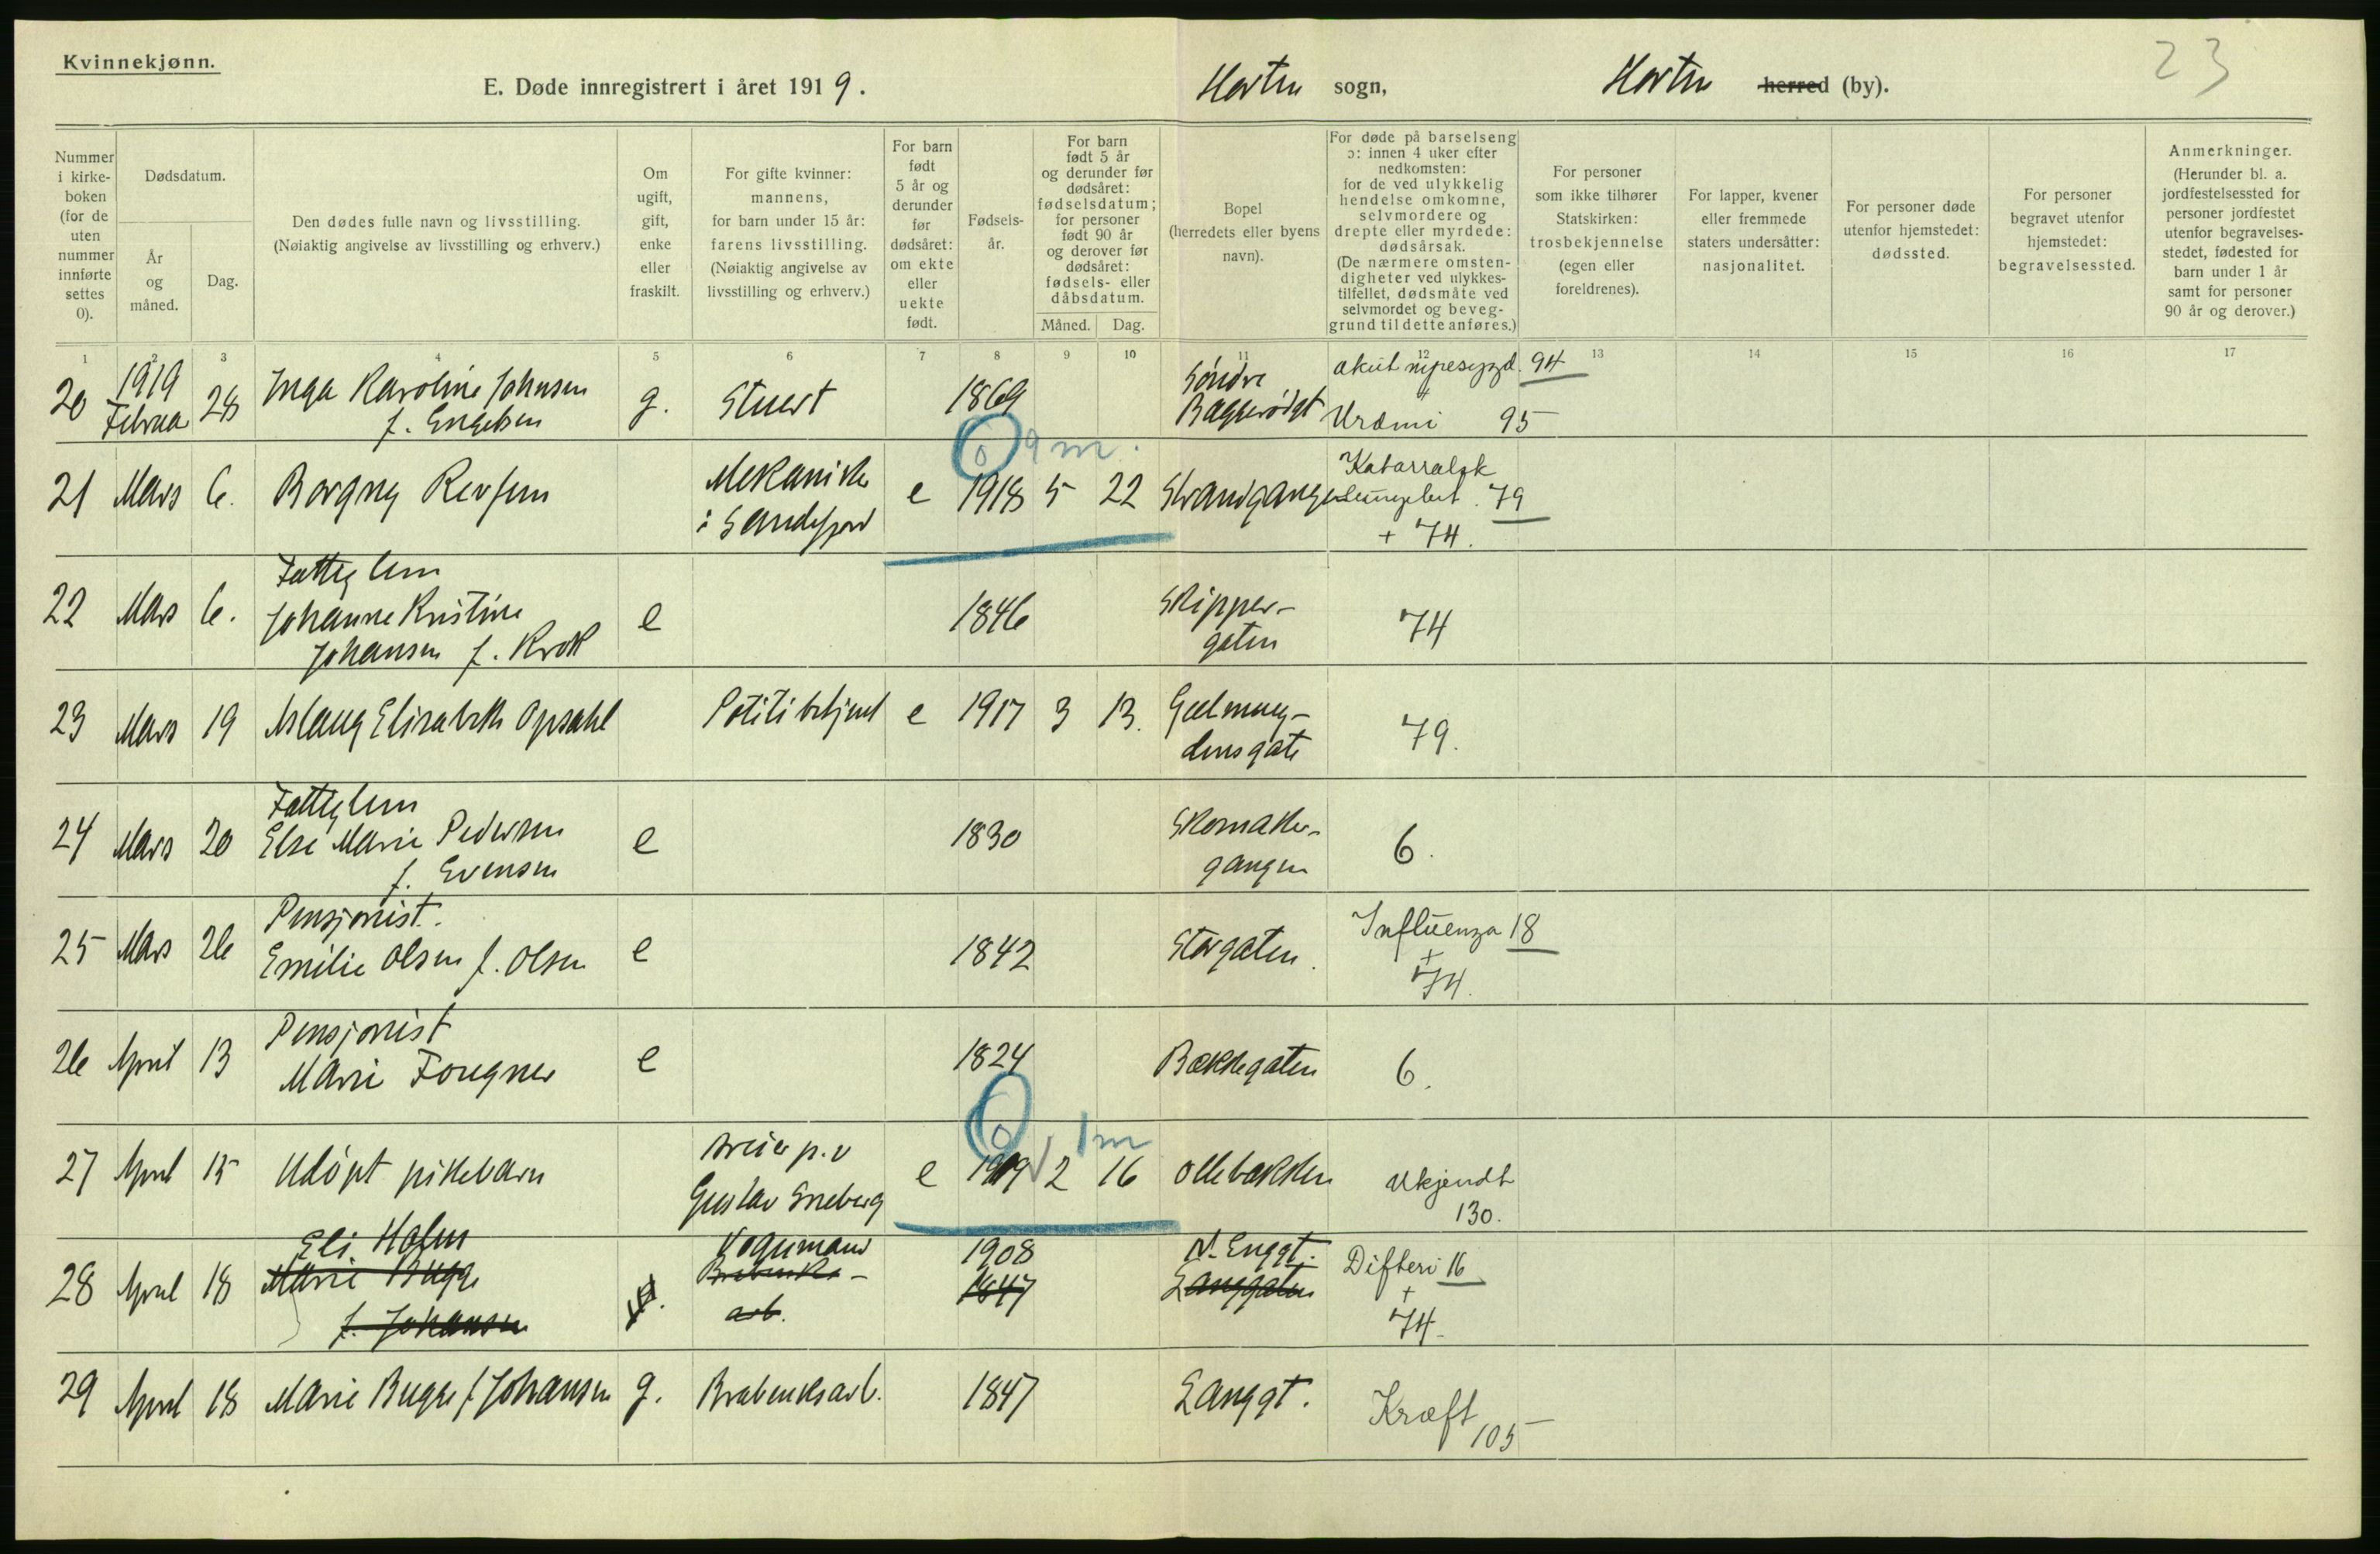 Kvinnekjønn.
23
E. Døde innregistrert i året 1919. Horten sogn, Horten herred (by).
Nummer i kirkeboken (for de uten nummer innførte settes 0).
Dødsdatum.
År og måned.
Dag.
Den dødes fulle navn og livsstilling.
(Nøiaktig angivelse av livsstilling og erhverv.)
Om ugift, gift, enke eller fraskilt.
For gifte kvinner: mannens, for barn under 15 år: farens livsstilling.
(Nøiaktig angivelse av livsstilling og erhverv.)
For barn født 5 år og derunder før dødsåret: om ekte eller uekte født.
Fødselsår.
For barn født 5 år og derunder før dødsåret: fødselsdatum; for personer født 90 år og derover før dødsåret: fødsels- eller dåbsdatum.
Måned. Dag.
Bopel
(herredets eller byens navn).
For døde på barselseng ɔ: innen 4 uker efter nedkomsten: for de ved ulykkelig hendelse omkomne, selvmordere og drepte eller myrdede: dødsårsak.
(De nærmere omstendigheter ved ulykkestilfellet, dødsmåte ved selvmordet og beveggrund til dette anføres.)
For personer som ikke tilhører Statskirken: trosbekjennelse (egen eller foreldrenes).
For lapper, kvener eller fremmede staters undersåtter: nasjonalitet.
For personer døde utenfor hjemstedet: dødssted.
For personer begravet utenfor hjemstedet: begravelsessted.
Anmerkninger.
(Herunder bl. a. jordfestelsessted for personer jordfestet utenfor begravelsesstedet, fødested for barn under 1 år samt for personer 90 år og derover.)
1 2 3 4 5 6 7 8 9 10 11 12 13 14 15 16 17
1919
20 Februa 28 Inga Karoline Johnsen f. Engelsen g. Stuert 1869 Söndre akut nyresygd. 94 + Urämi 95
0 9 m.
21 Mars 6. Borgny Mekaniker i Sandefjord e 1918 5 22 Strandgangen Katarralsk Lungebet. 79 + 74.
22 Mars 6. Fattiglem Johanne Kristine Johansen f. Krok e 1846 Skippergaten 74
23 Mars 19 Aslaug Elisabeth Opsahl Politibetjent e 1917 3 13. Gjelmuydensgate 79.
24 Mars 20 Fattiglem Else Marie Pedersen f. Evensen e 1830 Skomakergangen 6.
25 Mars 26 Pensjonist. Emilie Olsen f. Olsen e 1842 Storgaten. Influenza 18 + 74.
26 April 13 Pensjonist Marie Fougner e 1824 Bakkegaten 6.
0 1 m
27 April 15 Udöpt pikebarn Gustav Eneberg e 1919 2 16 Ollebakken Ukjendt 130.
28 April 18 Eli Holm Marie Bugge f. Johansen Vognmand Brobenksarb. 1908 1847 N. Enggt. Langgaten Difteri 16 + 74.
29 April 18 Marie Bugge f. Johansen g. Brobenksarb. 1847 Langgt. Kræft 105